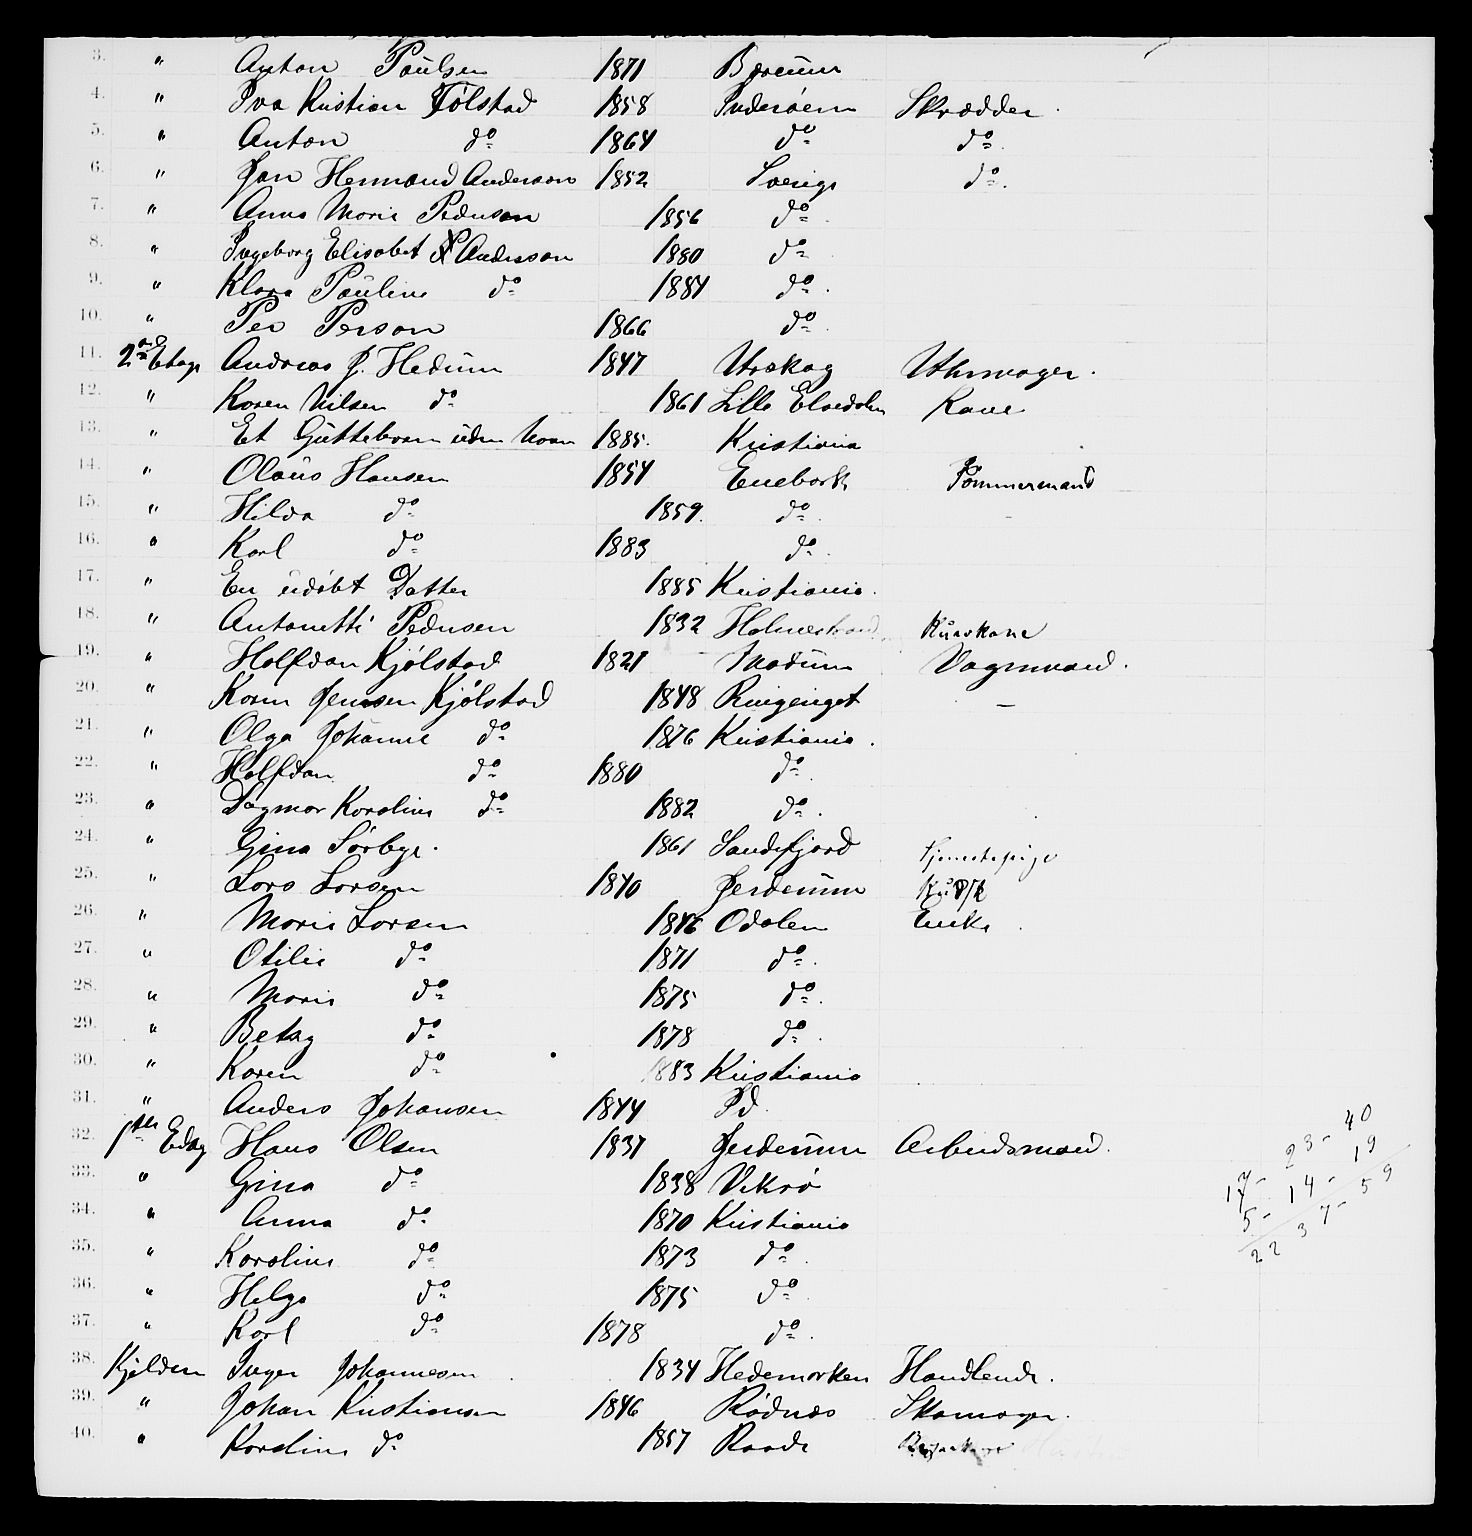 3. " Anton Paulsen 1871 Bæreum
4. " Iva Kristian Tølstad 1858 Inderøen Skrædder.
5. " Anton do 1864 do do.
6. " Jan Hermand Anderson 1852 Sverige do.
7. " Anna Marie Pedersen 1856 do.
8. " Ingeborg Elisabet Anderson 1880 do.
9. " Klara Pauline do 1884 do.
10. " Per Person 1866 do.
11. 2den Etage Andreas J. Hedum 1847 Urskog Uhrmager.
12. " Karen Nilsen do 1861 Lille Elvedalen Kone
13. " Et Guttebarn uden Navn 1885. Kristiania
14. " Olaus Hansen 1854 Enebark Tømmermand
15. " Hilda do 1859. do. -
16. " Karl do 1883 do.
17. " En udøbt Datter 1885 Kristiania.
18. " Antonetti Pedersen 1832 Holmestrand
19. " Halfdan Kjølstad 1821 Modum Vognmand.
20. " Karen Jensen Kjølstad 1848 Ringeriget -
21. " Olga Johanne do 1876 Kristiania.
22. " Halfdan do 1880 do.
23. " Dagmar Karoline do 1882 do.
24. " Gina Sørbye. 1861 Sandefjord Tjenestepige
25. " Lars Larsen 1840 Jerderum
26. " Marie Larsen 1846 Odalen Enke.
27. " Otilie do 1871 do.
28. " Marie do 1875 do.
29. " Betsy do 1878 do.
30. " Karen do 1883 Kristiania
31. " Anders Johansen 1844 Id.
32. 1ste Etag Hans Olsen 1837 Jerderum Arbeidsmand.
33. " Gina do 1838 Vikrø
34. " Anna do 1870 Kristiania
35. " Karoline do 1873 do.
36. " Helga do 1875 do.
37. " Karl do 1878 do.
38. Kjelderen Inger Johannesen 1834 Hedemarken Handlende.
39. " Johan Kristiansen 1846 Rødnæs Skomager.
40. " Karoline do 1857 Raade
17 - 23 - 40
5 - 14 - 19
22 37 - 59